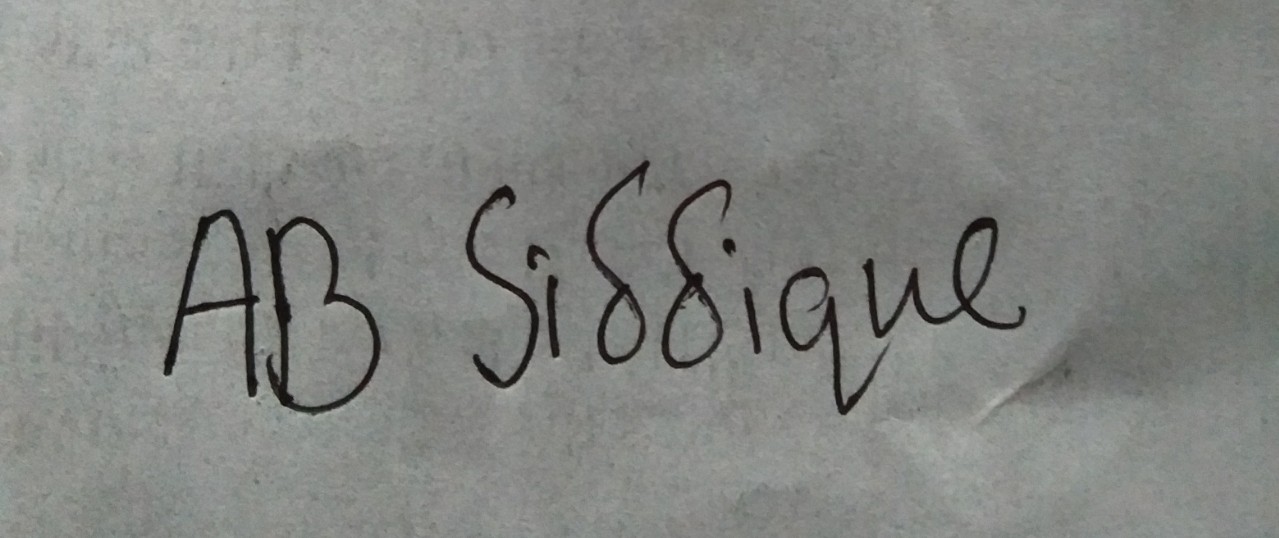 AB Siddique